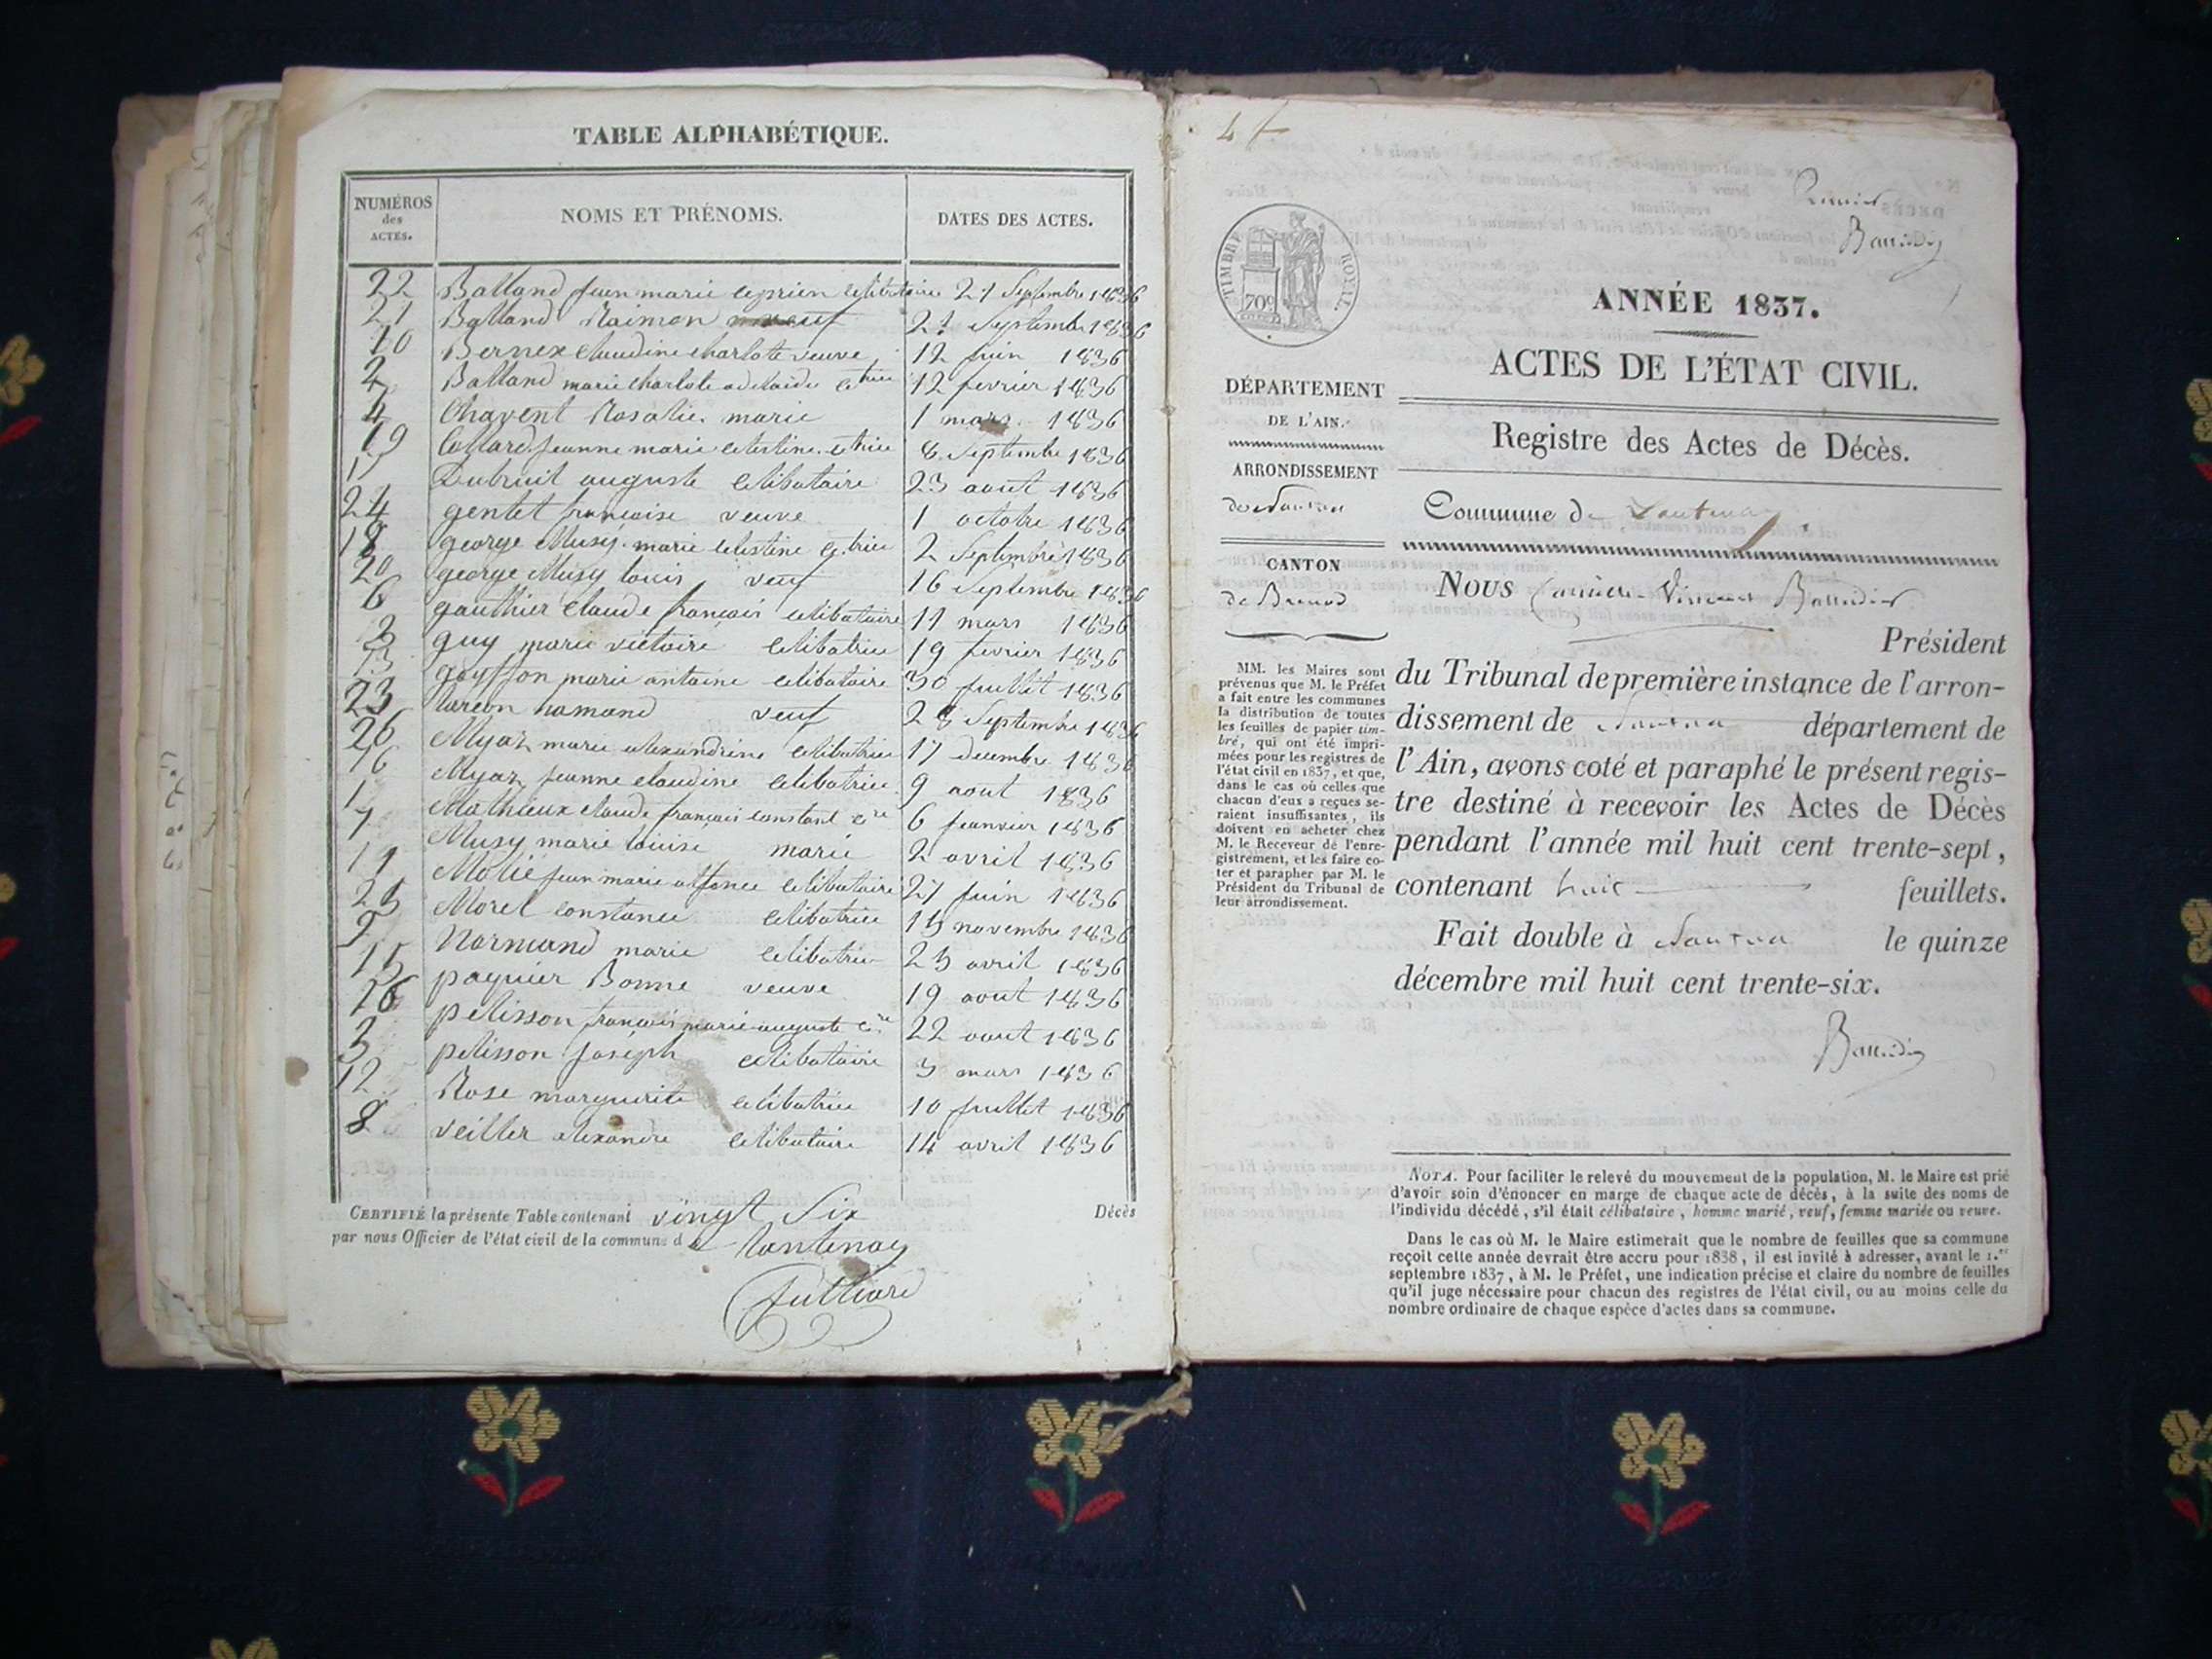 TABLE ALPHABÉTIQUE.
NUMÉROS
des
ACTES.
NOMS ET PRÉNOMS.
DATES DES ACTES.
22 Balland jean marie ceprien celibataire 21 Septembre 1836
21 Balland Raimon veuf 21 Septembre 1836
10 Bernex claudine charlote veuve 12 juin 1836
2 Balland marie charlote adelaide ce trice 12 fevrier 1836
4 Chavent Rosalie marie 1 mars 1836
19 Collard jeanne marie celestine ce trice 8 Septembre 1836
17 Dubruit auguste celibataire 23 aout 1836
24 gentet francoise veuve 1 octobre 1836
18 george Musy marie celestine ce trice 2 Septembre 1836
20 george Musy louis veuf 16 Septembre 1836
6 gauthier claude francois celibataire 11 mars 1836
3 guy marie victoire celibatrice 19 fevrier 1836
13 goyffon marie antoine celibataire 30 juillet 1836
23 hamand veuf 28 Septembre 1836
26 Myaz marie alexandrine celibatrice 17 decembre 1836
16 Myaz jeanne claudine celibatrice 9 aout 1836
1 Mathieux claude francois constant ce re 6 jeanvier 1836
7 Musy marie louise marié 2 avril 1836
11 Molié jean marie alfonce celibataire 27 juin 1836
25 Morel constance celibatrice 15 novembre 1836
9 Normand marie celibatrice 25 avril 1836
15 paquier Bonne veuve 19 aout 1836
16 pelisson francois marie auguste ce re 22 aout 1836
5 pelisson joseph celibataire 3 mars 1836
12 Rose marguerite celibatrice 10 juillet 1836
8 veiller alexandre celibataire 14 avril 1836
CERTIFIÉ la présente Table contenant vingt Six Décès
par nous Officier de l'état civil de la commune d e Lantenay
Julliard
TIMBRE ROYAL
70c
ANNÉE 1837.
ACTES DE L'ÉTAT CIVIL.
Registre des Actes de Décès.
Commune de Lantenay
DÉPARTEMENT
DE L'AIN.
ARRONDISSEMENT
de Nantua
CANTON
de Brenod
MM. les Maires sont
prévenus que M. le Préfet
a fait entre les communes
la distribution de toutes
les feuilles de papier tim-
bré, qui ont été impri-
mées pour les registres de
l'état civil en 1837, et que,
dans le cas où celles que
chacun d'eux a reçues se-
raient insuffisantes, ils
doivent en acheter chez
M. le Receveur de l'enre-
gistrement, et les faire co-
ter et parapher par M. le
Président du Tribunal de
leur arrondissement.
Nous Vincent
Président
du Tribunal de première instance de l'arron-
dissement de Nantua département de
l'Ain, avons coté et paraphé le présent regis-
tre destiné à recevoir les Actes de Décès
pendant l'année mil huit cent trente-sept,
contenant huit feuillets.
Fait double à Nantua le quinze
décembre mil huit cent trente-six.
NOTA. Pour faciliter le relevé du mouvement de la population, M. le Maire est prié
d'avoir soin d'énoncer en marge de chaque acte de décès, à la suite des noms de
l'individu décédé, s'il était célibataire, homme marié, veuf, femme mariée ou veuve.
Dans le cas où M. le Maire estimerait que le nombre de feuilles que sa commune
reçoit cette année devrait être accru pour 1838, il est invité à adresser, avant le 1.er
septembre 1837, à M. le Préfet, une indication précise et claire du nombre de feuilles
qu'il juge nécessaire pour chacun des registres de l'état civil, ou au moins celle du
nombre ordinaire de chaque espèce d'actes dans sa commune.